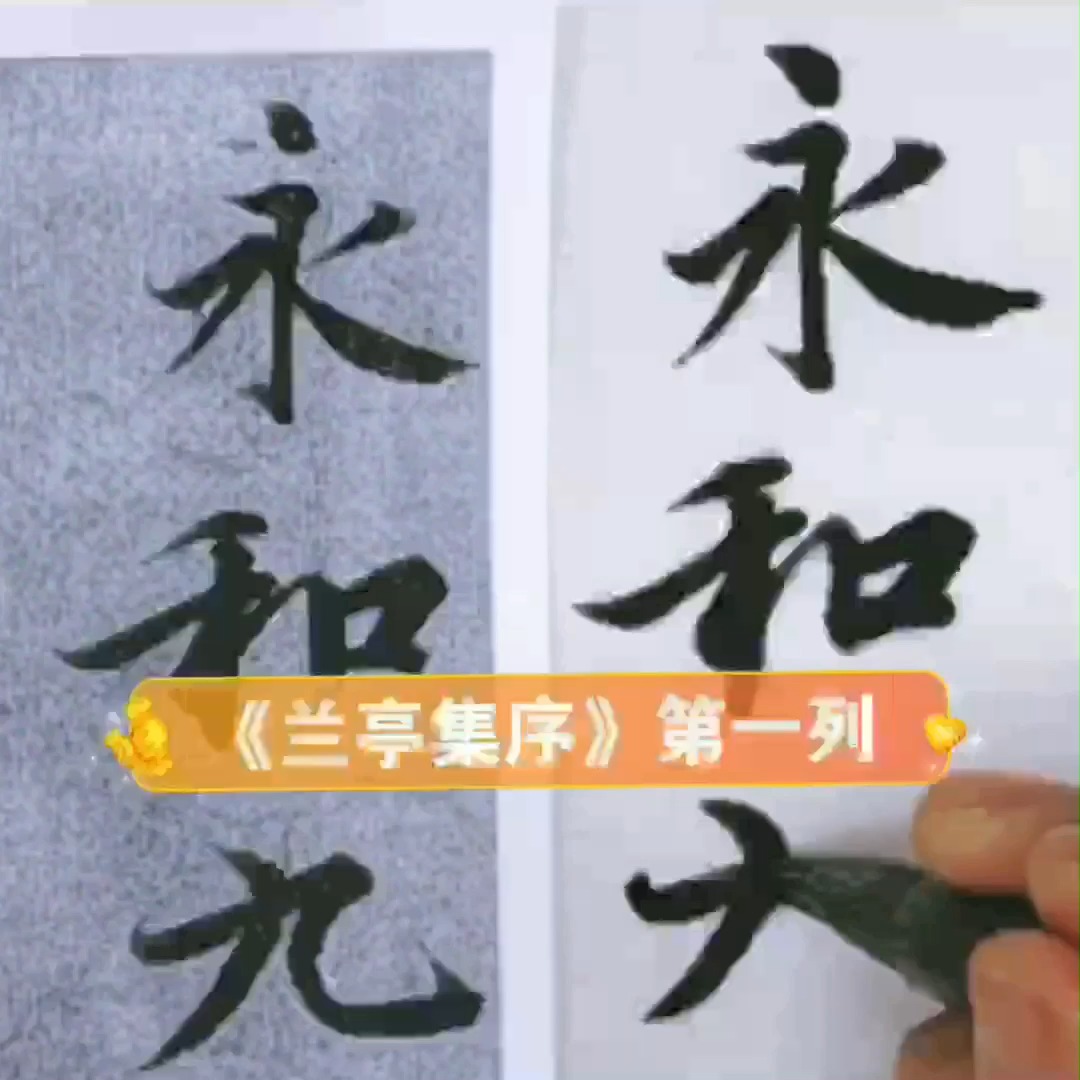 永和九
永和
《兰亭集序》第一列